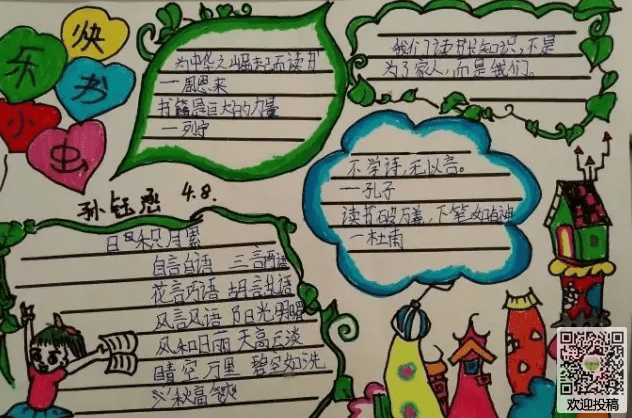 快
乐
书
小
虫
为中华之崛起而读书
一周恩来
书籍是巨大的力量
一列宁
我们读书长知识,不是
为了家人,而是我们。
不学诗,无以言。
一孔子
读书破万卷,下笔如有神
一杜甫
4.8.
日积月累
自言自语 三言两语
花言巧语 胡言乱语
风言风语 阳光明媚
风和日丽 天高云淡
晴空万里 碧空如洗
秋高气爽
欢迎投稿